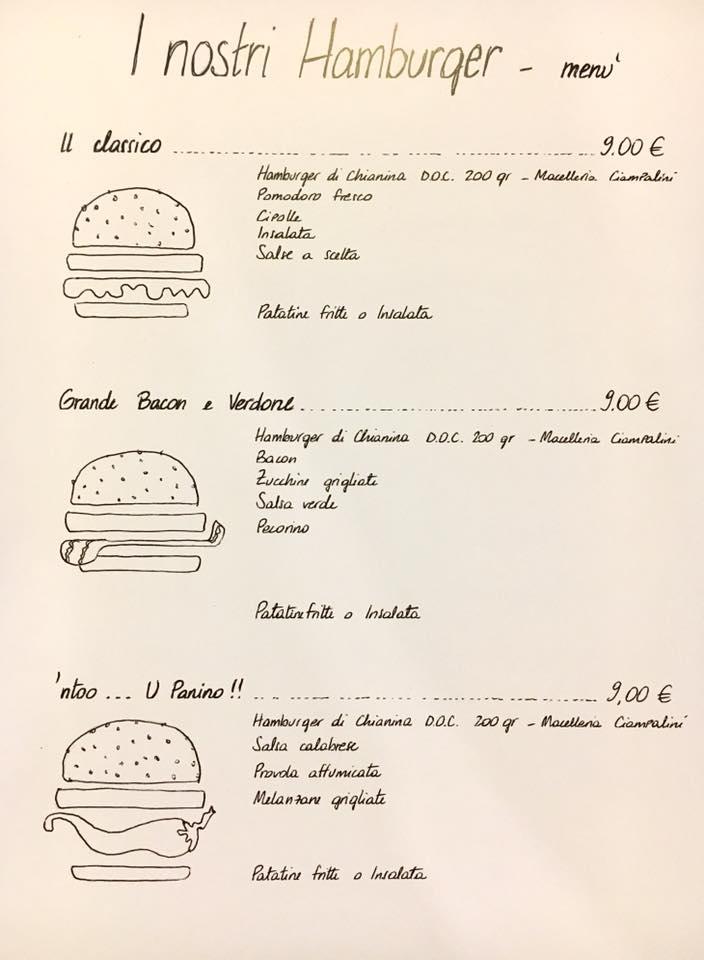 I nostri Hamburger - menu'
Il classico 9.00 €
Hamburger di Chianina D.O.C. 200 gr - Macelleria Ciampalini
Pomodoro fresco
Cipolle
Insalata
Salse a scelta
Patatine fritte o Insalata
Grande Bacon e Verdone 9.00 €
Hamburger di Chianina D.O.C. 200 gr - Macelleria Ciampalini
Bacon
Zucchine grigliate
Salsa verde
Pecorino
Patatine fritte o Insalata
'ntoo ... U Panino!! 9,00 €
Hamburger di Chianina D.O.C. 200 gr - Macelleria Ciampalini
Salsa calabrese
Provola affumicata
Melanzane grigliate
Patatine fritte o Insalata